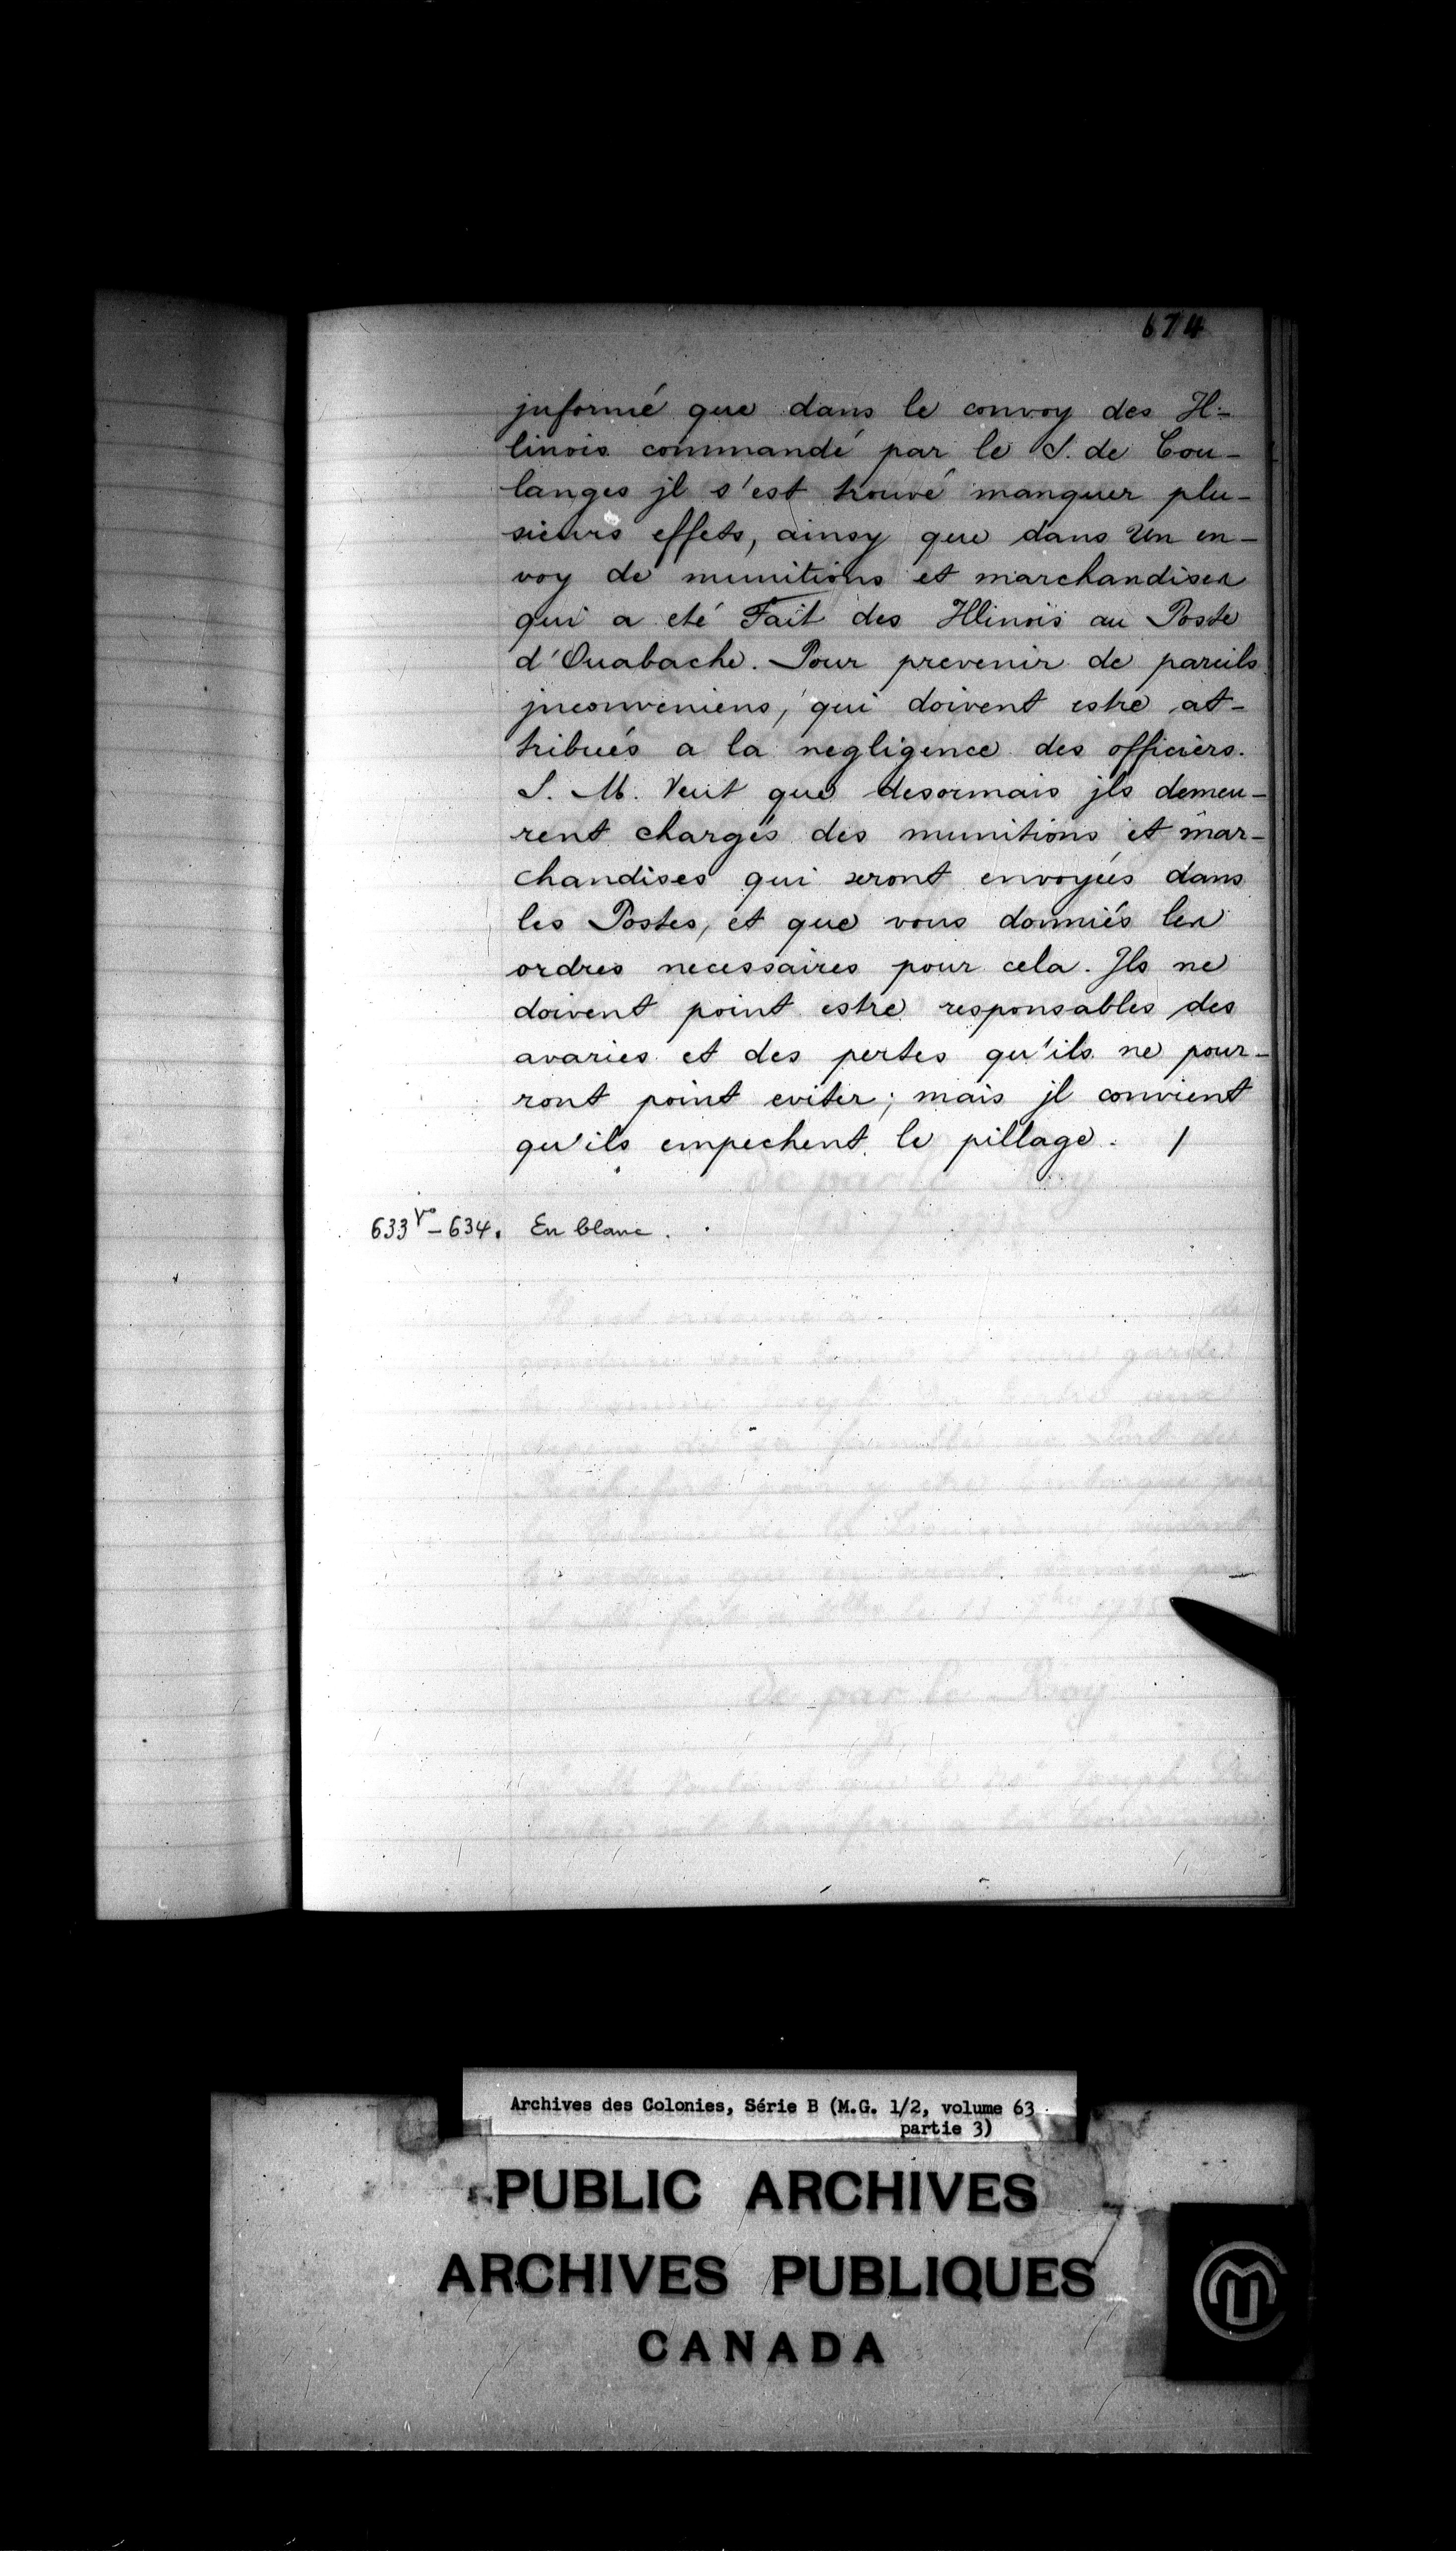 674
jnformé que dans le convoy des Il-
linois commandé par le S. de Cou-
langes jl s'est trouvé manquer plu-
sieurs effets, ainsy que dans Un en-
voy de munitions et marchandises
qui a eté Fait des Illinois au Poste
d'Ouabache. Pour prevenir de pareils
jnconveniens, qui doivent estre at-
tribués a la negligence des officiers.
S. M. Veut que desormais jls demeu-
rent chargés des munitions et mar-
chandises qui seront envoyées dans
les Postes, et que vous donniés les
ordres necessaires pour cela. Ils ne
doivent point estre responsables des
avaries et des pertes qu'ils ne pour-
ront point eviter; mais jl convient
qu'ils empechent le pillage. /
633 vo - 634. En blanc.
de par le Roy
Archives des Colonies, Série B (M.G. 1/2, volume 63
partie 3)
PUBLIC ARCHIVES
ARCHIVES PUBLIQUES
CANADA